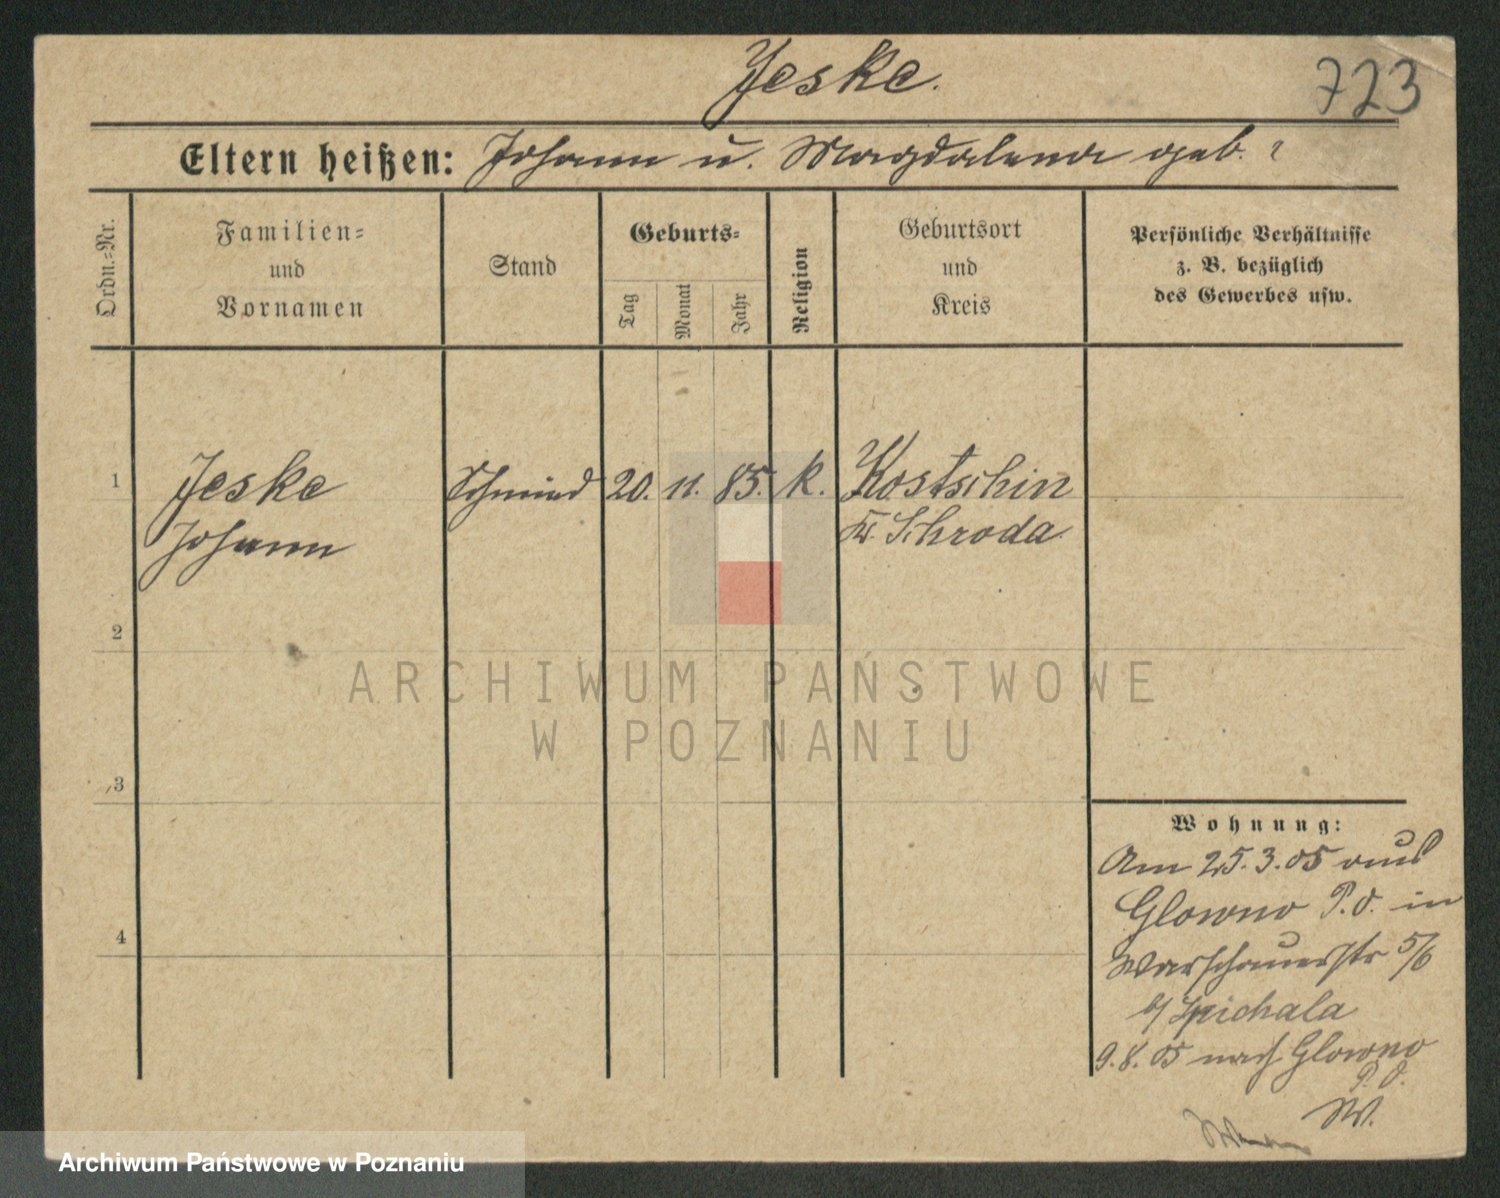 Jeske.
723
Eltern heißen: Johann u. Magdalena geb. ?
Ordn.-Nr.
Familien- und Vornamen
Stand
Geburts-
Tag
Monat
Jahr
Religion
Geburtsort und Kreis
Persönliche Verhältnisse
z. B. bezüglich
des Gewerbes usw.
1 Jeske Schmied 20. 11. 85. k. Kostschin
Johann Kr. Schroda
2
ARCHIWUM PAŃSTWOWE
W POZNANIU
3
Wohnung:
Am 25.3.05 aus
Glowno P.O. in
4
Warschauerstr 5/6
b/ Spichala
9.8.05 nach Glowno
P.O.
W.
Archiwum Państwowe w Poznaniu